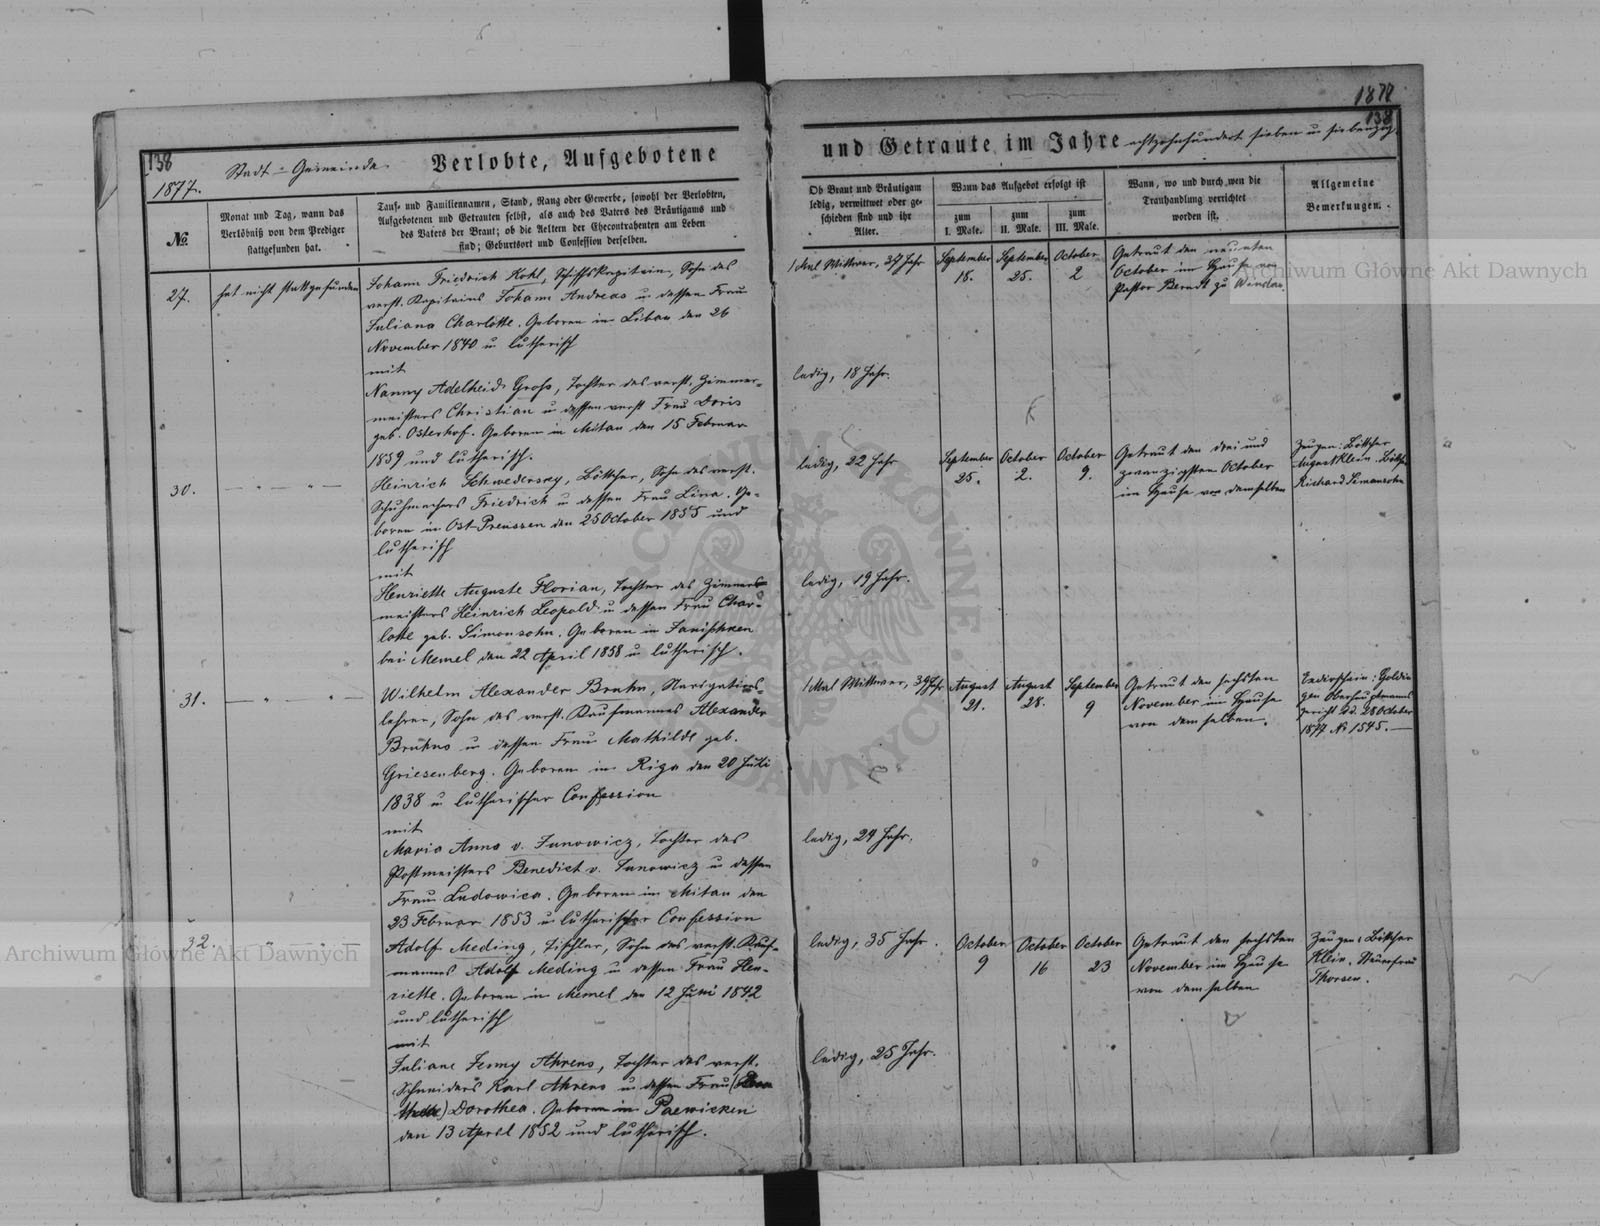 138
1877.
Stadt-Gemeinde
Verlobte, Aufgebotene
№
Monat und Tag, wann das
Verlöbniß von dem Prediger
stattgefunden hat.
Tauf- und Familiennamen, Stand, Rang oder Gewerbe, sowohl der Verlobten,
Aufgebotenen und Getrauten selbst, als auch des Vaters des Bräutigams und
des Vaters der Braut; ob die Aeltern der Ehecontrahenten am Leben
sind; Geburtsort und Confession derselben.
27.
hat nicht stattgefunden
Johann Friedrich Kohl, Schiffskapitain, Sohn des
verst. Kapitains Johann Andreas u. dessen Frau
Juliana Charlotte. Geboren in Libau den 26
November 1840 u. lutherisch
mit
Nanny Adelheid Groß, Tochter des verst. Zimmer-
meisters Christian u. dessen verst. Frau Doris
geb. Osterhof. Geboren in Mitau den 15 Februar
1859 und lutherisch.
30.
— " — " —
Heinrich Schwedersky, Böttcher, Sohn des verst.
Schuhmachers Friedrich u. dessen Frau Lina. Ge-
boren in Ost-Preussen den 25 October 1855 und
lutherisch
mit
Henriette Auguste Florian, Tochter des Zimmer-
meisters Heinrich Leopold u. dessen Frau Char-
lotte geb. Simonsohn. Geboren in Janischken
bei Memel den 22 April 1858 u. lutherisch.
31.
— " — " —
Wilhelm Alexander Bruhn, Navigations-
lehrer, Sohn des verst. Kaufmannes Alexander
Bruhns u. dessen Frau Mathilde geb.
Griesenberg. Geboren in Riga den 20 Juli
1838 u. lutherischer Confession
mit
Maria Anna v. Janowicz, Tochter des
Postmeisters Benedict v. Janowicz u. dessen
Frau Ludowica. Geboren in Mitau den
23 Februar 1853 u. lutherischer Confession
32.
— " — " —
Adolf Meding, Tischler, Sohn des verst. Kauf-
mannes Adolf Meding u. dessen Frau Hen-
riette. Geboren in Memel den 12 Juni 1842
und lutherisch
mit
Juliane Jenny Ahrens, Tochter des verst.
Schneiders Karl Ahrens u. dessen Frau
Dorothea. Geboren in Paewicken
den 13 April 1852 und lutherisch.
1877
138
und Getraute im Jahre achtzehnhundert sieben u. siebenzig.
Ob Braut und Bräutigam
ledig, verwittwet oder ge-
schieden sind und ihr
Alter.
Wann das Aufgebot erfolgt ist
zum
I. Male.
zum
II. Male.
zum
III. Male.
Wann, wo und durch wen die
Trauhandlung verrichtet
worden ist.
Allgemeine
Bemerkungen.
1 Mal Wittwer, 37 Jahr
September
18.
September
25.
October
2
Getraut den neunten
October im Hause v.
Pastor Berndt zu Windau.
ledig, 18 Jahr.
ledig, 22 Jahr
September
25.
October
2.
October
9.
Getraut den drei und
zwanzigsten October
im Hause von demselben
Zeugen: Böttcher
August Klein. Böttch.
Richard Simonsohn
ledig, 19 Jahr.
1 Mal Wittwer, 39 Jahr
August
21.
August
28.
September
9
Getraut den sechsten
November im Hause
von demselben.
Goldin-
gen Oberhauptmanns
gericht d.d. 28 October
1877 № 1545. —
ledig, 24 Jahr.
ledig, 35 Jahr.
October
9
October
16
October
23
Getraut den sechsten
November im Hause
von demselben
Zeugen: Böttcher
Klein.
Thorsen.
ledig, 25 Jahr.
Archiwum Główne Akt Dawnych
Archiwum Główne Akt Dawnych
ARCHIWUM GŁÓWNE
AKT DAWNYCH